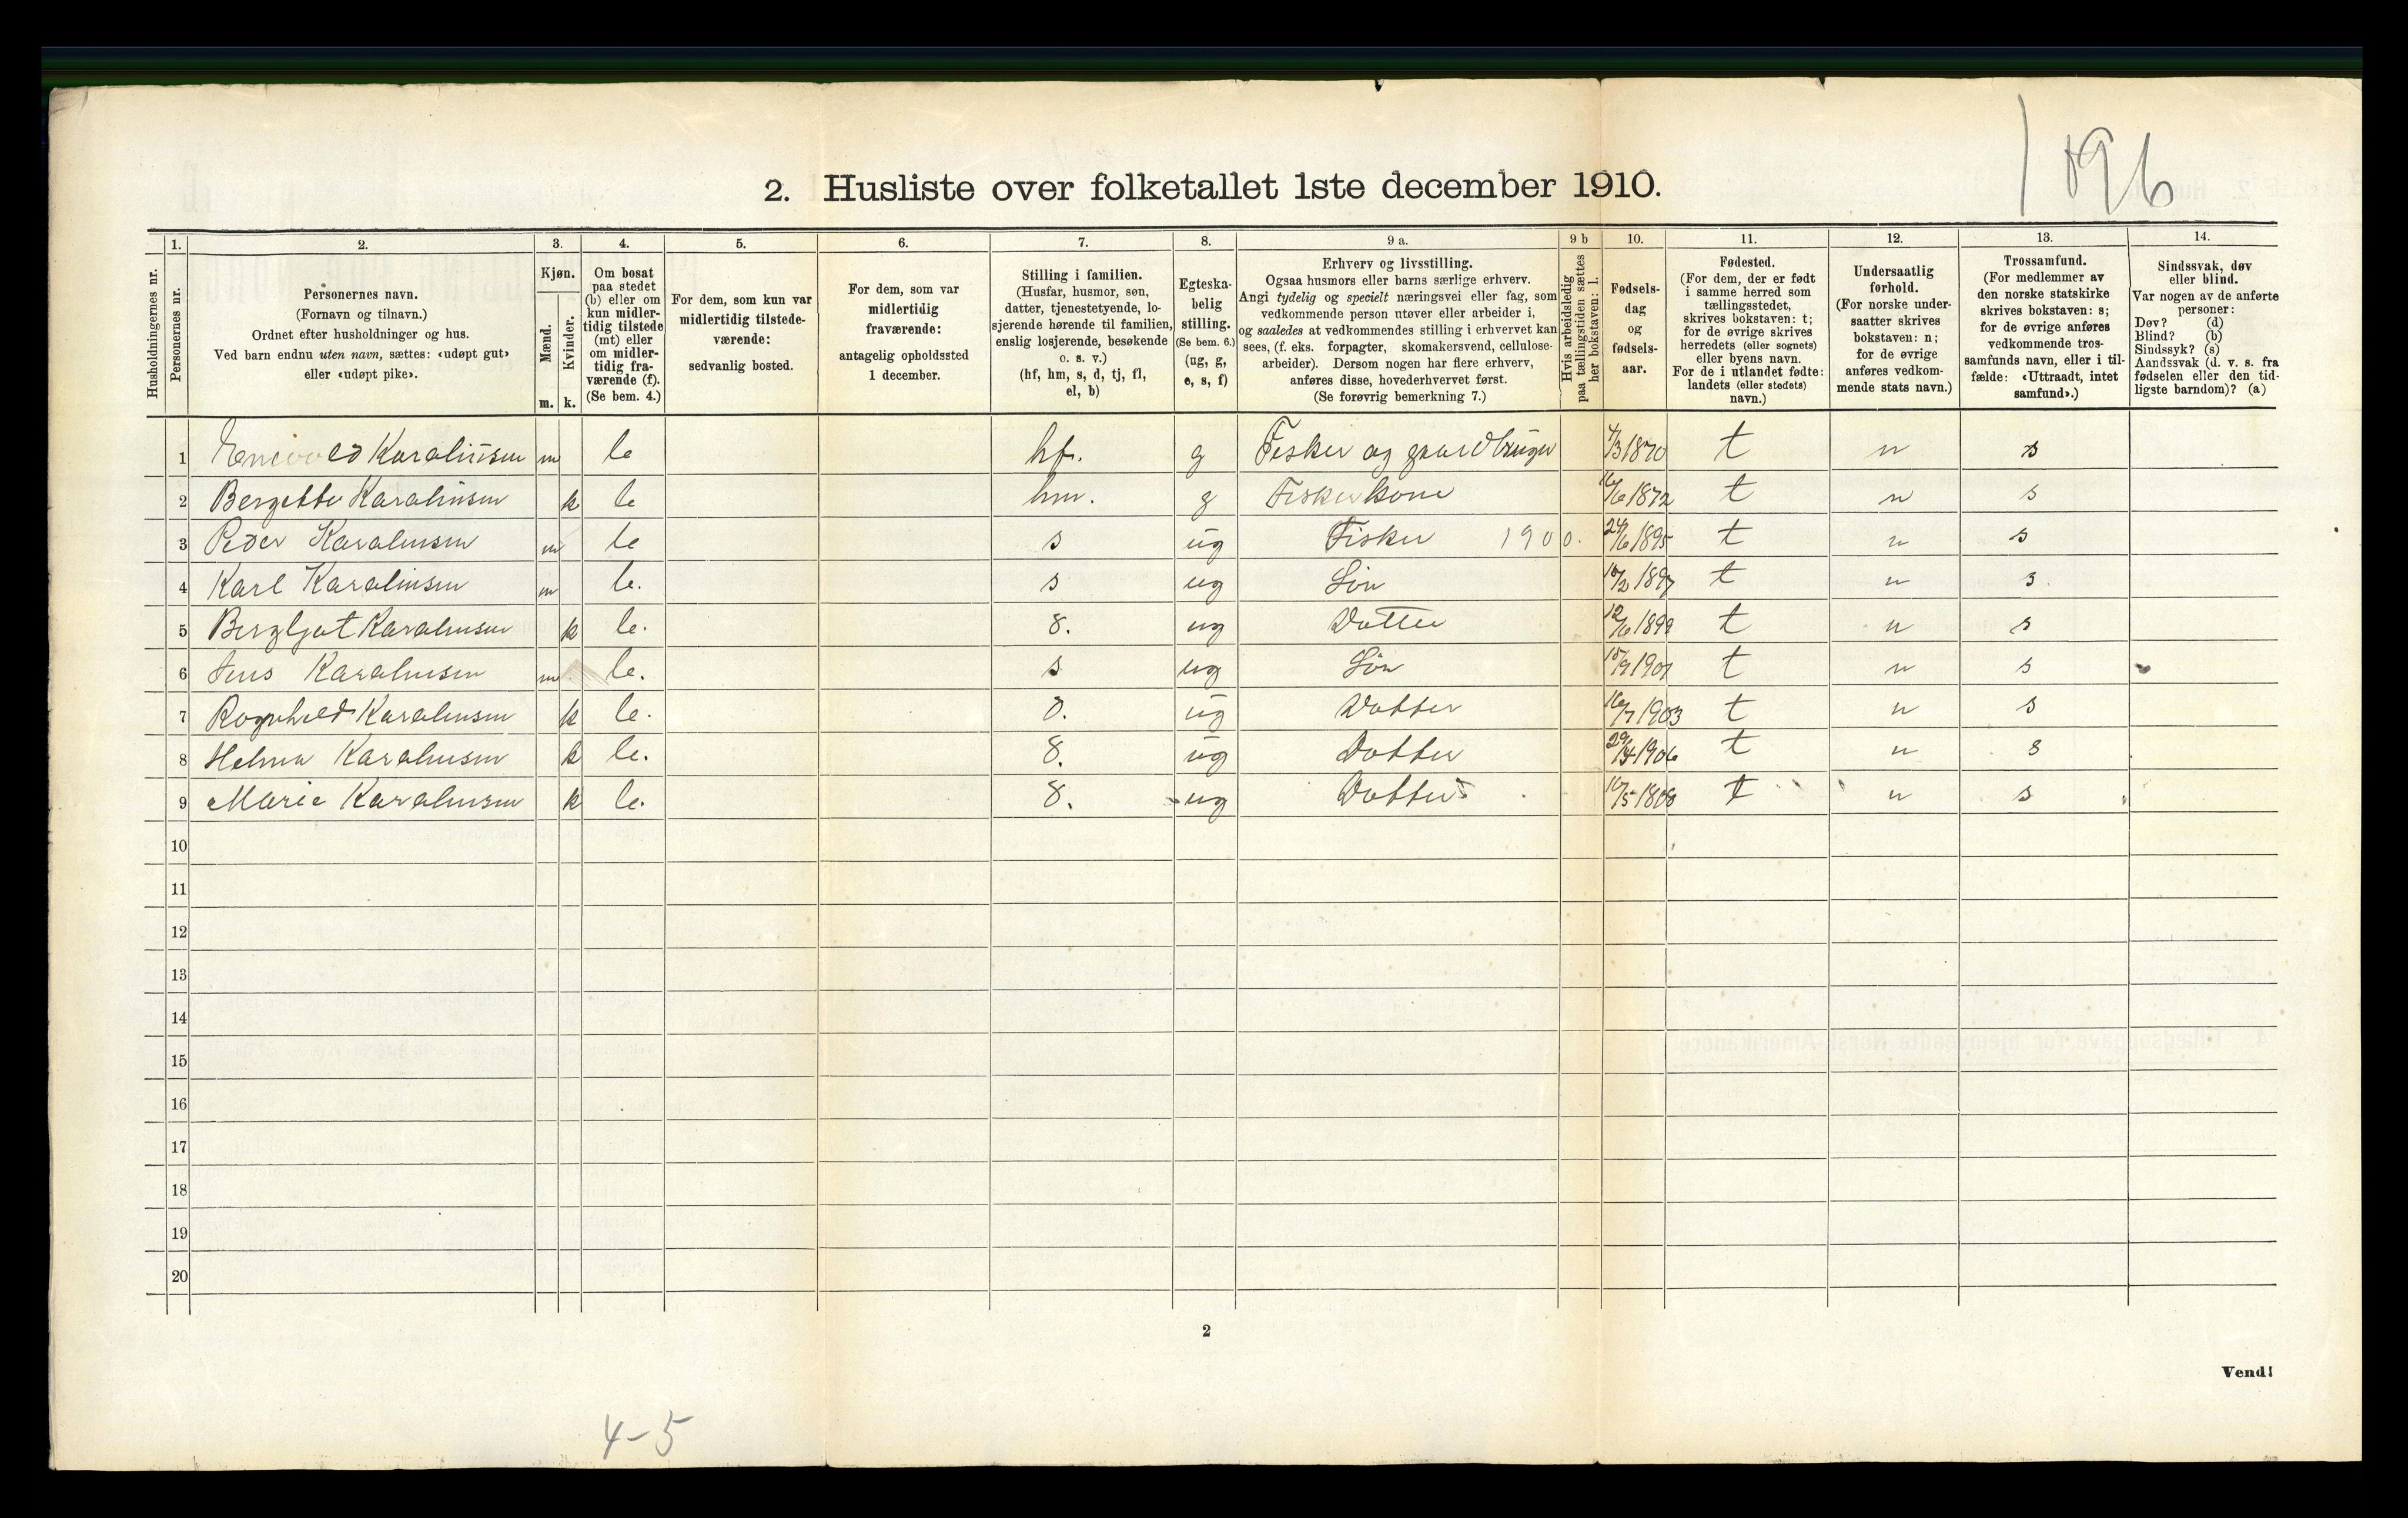 1896
2. Husliste over folketallet 1ste december 1910.
1. 2. 3. 4. 5. 6. 7. 8. 9 a. 9 b 10. 11. 12. 13. 14.
Husholdningernes nr.
Personernes nr.
Personernes navn.
(Fornavn og tilnavn.)
Ordnet efter husholdninger og hus.
Ved barn endnu uten navn, sættes: «udøpt gut»
eller «udøpt pike».
Kjøn.
Mænd.
Kvinder.
m. k.
Om bosat
paa stedet
(b) eller om
kun midler-
tidig tilstede
(mt) eller
om midler-
tidig fra-
værende (f).
(Se bem. 4.)
For dem, som kun var
midlertidig tilstede-
værende:
sedvanlig bosted.
For dem, som var
midlertidig
fraværende:
antagelig opholdssted
1 december.
Stilling i familien.
(Husfar, husmor, søn,
datter, tjenestetyende, lo-
sjerende hørende til familien,
enslig losjerende, besøkende
o. s. v.)
(hf, hm, s, d, tj, fl,
el, b)
Egteska-
belig
stilling.
(Se bem. 6.)
(ug, g,
e, s, f)
Erhverv og livsstilling.
Ogsaa husmors eller barns særlige erhverv.
Angi tydelig og specielt næringsvei eller fag, som
vedkommende person utøver eller arbeider i,
og saaledes at vedkommendes stilling i erhvervet kan
sees, (f. eks. forpagter, skomakersvend, cellulose-
arbeider). Dersom nogen har flere erhverv,
anføres disse, hovederhvervet først.
(Se forøvrig bemerkning 7.)
Hvis arbeidsledig
paa tællingstiden sættes
her bokstaven: l.
Fødsels-
dag
og
fødsels-
aar.
Fødested.
(For dem, der er født
i samme herred som
tællingsstedet,
skrives bokstaven: t;
for de øvrige skrives
herredets (eller sognets)
eller byens navn.
For de i utlandet fødte:
landets (eller stedets)
navn.)
Undersaatlig
forhold.
(For norske under-
saatter skrives
bokstaven: n;
for de øvrige
anføres vedkom-
mende stats navn.)
Trossamfund.
(For medlemmer av
den norske statskirke
skrives bokstaven: s;
for de øvrige anføres
vedkommende tros-
samfunds navn, eller i til-
fælde: «Uttraadt, intet
samfund».)
Sindssvak, døv
eller blind.
Var nogen av de anførte
personer:
Døv? (d)
Blind? (b)
Sindssyk? (s)
Aandssvak (d. v. s. fra
fødselen eller den tid-
ligste barndom)? (a)
1 Karaliusen m b hf. g Fisker og gaardbruger 4/3 1870 t n s
2 Bergitte Karaliusen k b hm. g Fiskerkone 16/6 1872 t n s
3 Peder Karaliusen m b s ug Fisker 1900. 24/6 1895 t n s
4 Karl Karaliusen m b. s ug Søn 10/2 1897 t n s
5 Bergljot Karaliusen k b. d. ug Datter 12/6 1899 t n s
6 Jens Karaliusen m b. s ug Søn 1901 t n s
7 Ragnhild Karaliusen k b. d. ug Datter 16/7 1903 t n s
8 Helma Karaliusen k b. d. ug Datter 1906 t n s
9 Marie Karaliusen k b. d. ug Datter t n s
10
11
12
13
14
15
16
17
18
19
20
2
Vend!
4-5